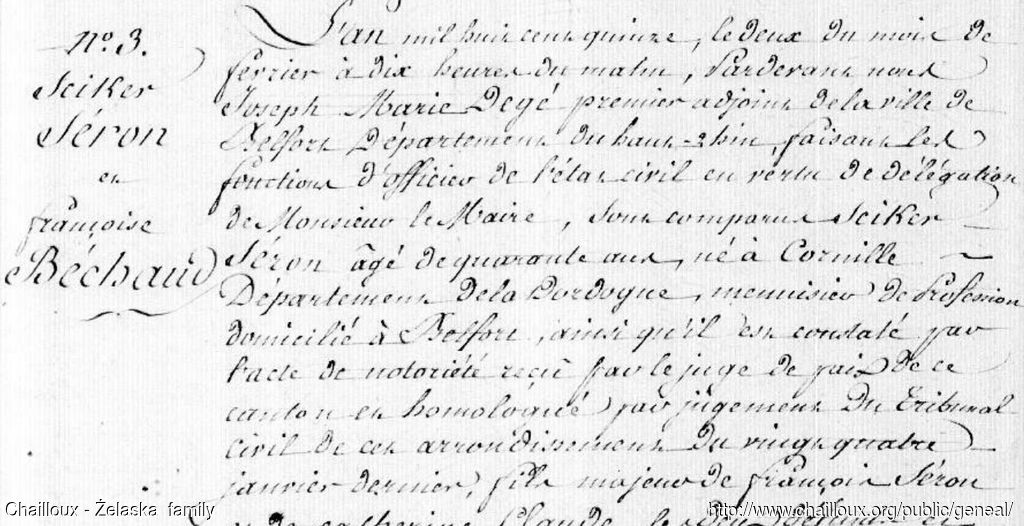 n.o 3.
Seiker
Séron
et
françoise
Béchaud
L'an mil huit cent quinze, le deux du mois de
février à dix heures du matin, Pardevant nous
Joseph Marie Degé premier adjoint de la ville de
Belfort Département du haut-rhin, faisant les
fonctions d'officier de l'état civil en vertu de délégation
de Monsieur le Maire, sont comparus Seiker
Séron âgé de quarante ans, né à Cornille
Département de la Dordogne, menuisier de Profession
domicilié à Belfort, ainsi qu'il est constaté par
l'acte de notoriété reçu par le juge de paix de ce
canton et homologué par jugement du tribunal
civil de cet arrondissement du vingt quatre
janvier dernier, fils majeur de françois Séron
de catherine Claude
Chailloux - Żelaska family
http://www.chailloux.org/public/geneal/